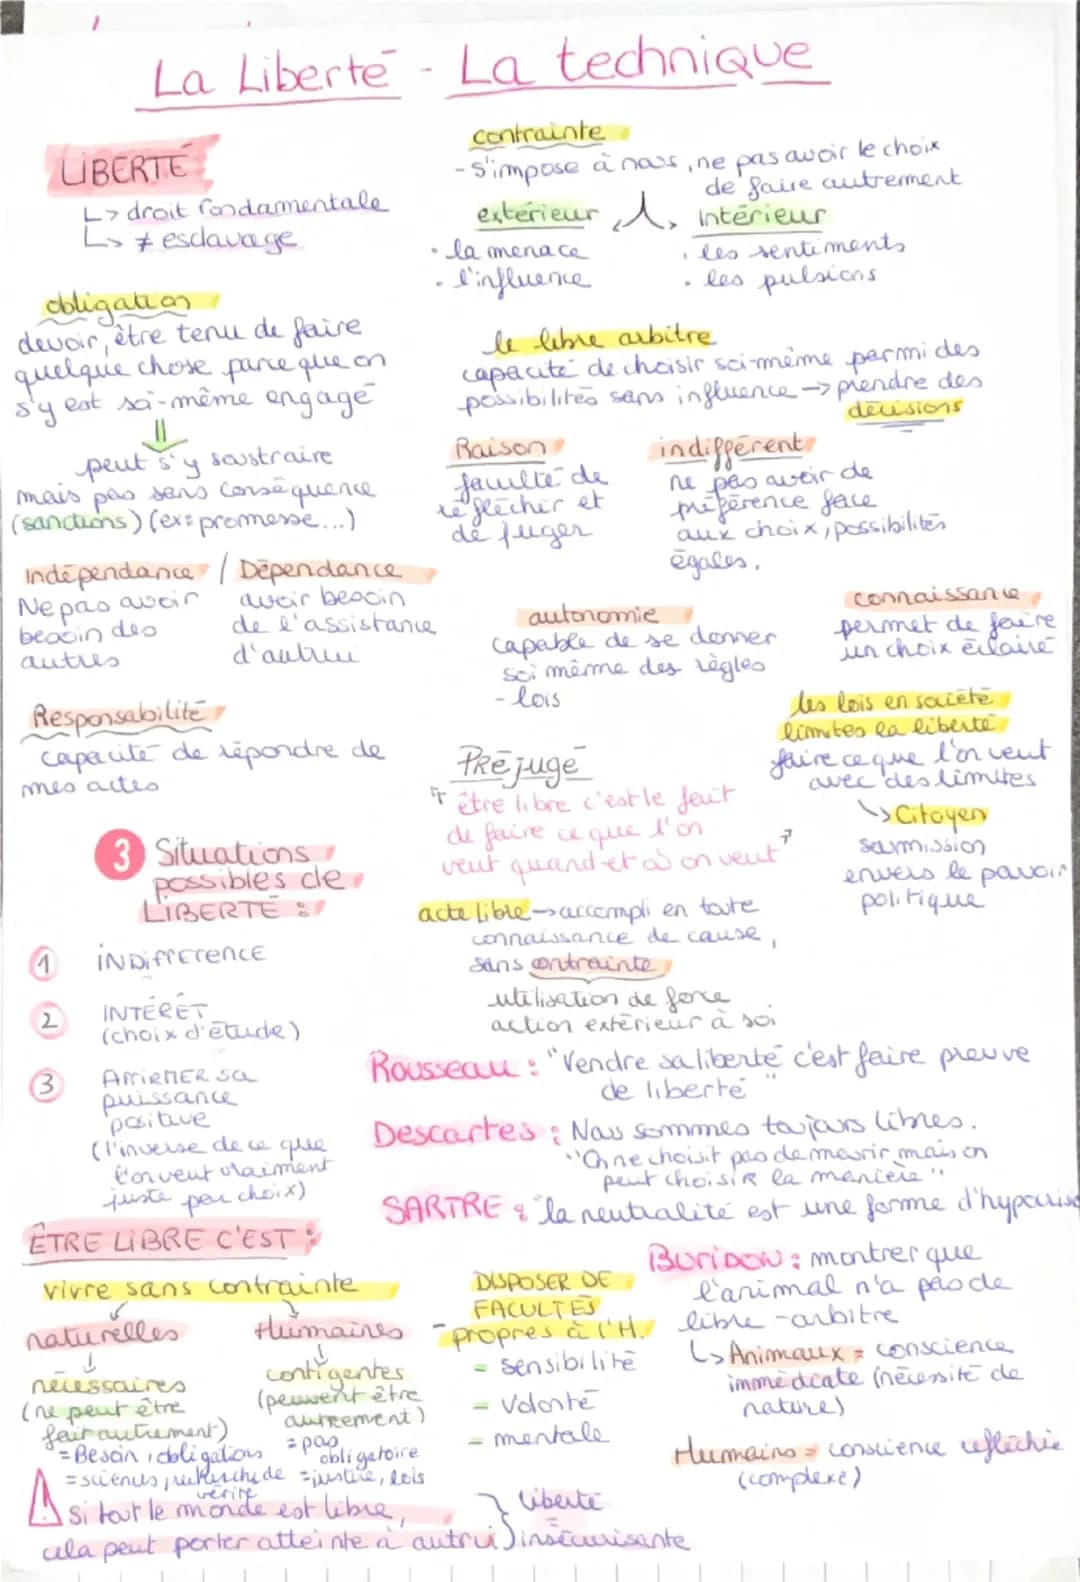 La Liberté - La technique
LIBERTÉ
↳ droit fondamentale
↳ ≠ esclavage
contrainte
- s'impose à nous, ne pas avoir le choix
de faire autrement
extérieur
intérieur
· la menace
· l'influence
· les sentiments
· les pulsions
obligation
devoir, être tenu de faire
quelque chose parce que on
s'y est soi-même engagé
peut s'y soustraire
mais pas sans conséquence
(sanctions) (ex: promesse...)
le libre arbitre
capacité de choisir soi-même parmi des
possibilités sans influence → prendre des
décisions
Raison
faculté de
réflechir et
de juger
indifférent
ne pas avoir de
préférence face
aux choix, possibilités
égales.
Indépendance / Dépendance
Ne pas avoir
besoin des
autres
avoir besoin
de l'assistance
d'autrui
autonomie
capable de se donner
soi même des règles
- lois
connaissance
permet de faire
un choix éclairé
Responsabilité
capacité de répondre de
mes actes
les lois en société
limites la liberté
faire ce que l'on veut
avec des limites
↳ Citoyen
soumission
envers le pavoir
politique
Préjugé
être libre c'est le fait
de faire ce que l'on
veut quand et où on veut
3 Situations
possibles de
LIBERTÉ :
1 INDIFFERENCE
2 INTÉRÊT
(choix d'étude)
3 AFFIRMER sa
puissance
positive
(l'inverse de ce que
l'on veut vraiment
juste par choix)
acte libre → accompli en toute
connaissance de cause,
sans contrainte
utilisation de force
action extérieur à soi
Rousseau : "Vendre sa liberté c'est faire preuve
de liberté"
Descartes : Nous sommes toujours libres.
"On ne choisit pas de mourir mais on
peut choisir la manière"
SARTRE : "la neutralité est une forme d'hypocrisie
ÊTRE LIBRE C'EST :
vivre sans contrainte
naturelles
Humaines
nécessaires
(ne peut être
fait autrement)
= Besoin, obligations
= sciences, recherche de
vérité
contigentes
(peuvent être
autrement)
= pas
obligatoire
= justice, lois
DISPOSER DE
FACULTÉS
propres à l'H.
- sensibilité
- Volonté
- mentale
BURIDON : montrer que
l'animal n'a pas de
libre-arbitre
↳ Animaux = conscience
immédiate (nécessité de
nature)
Humains = conscience reflèchie
(complexe)
⚠ si tout le monde est libre,
cela peut porter atteinte à autrui
} liberté
insécurisante